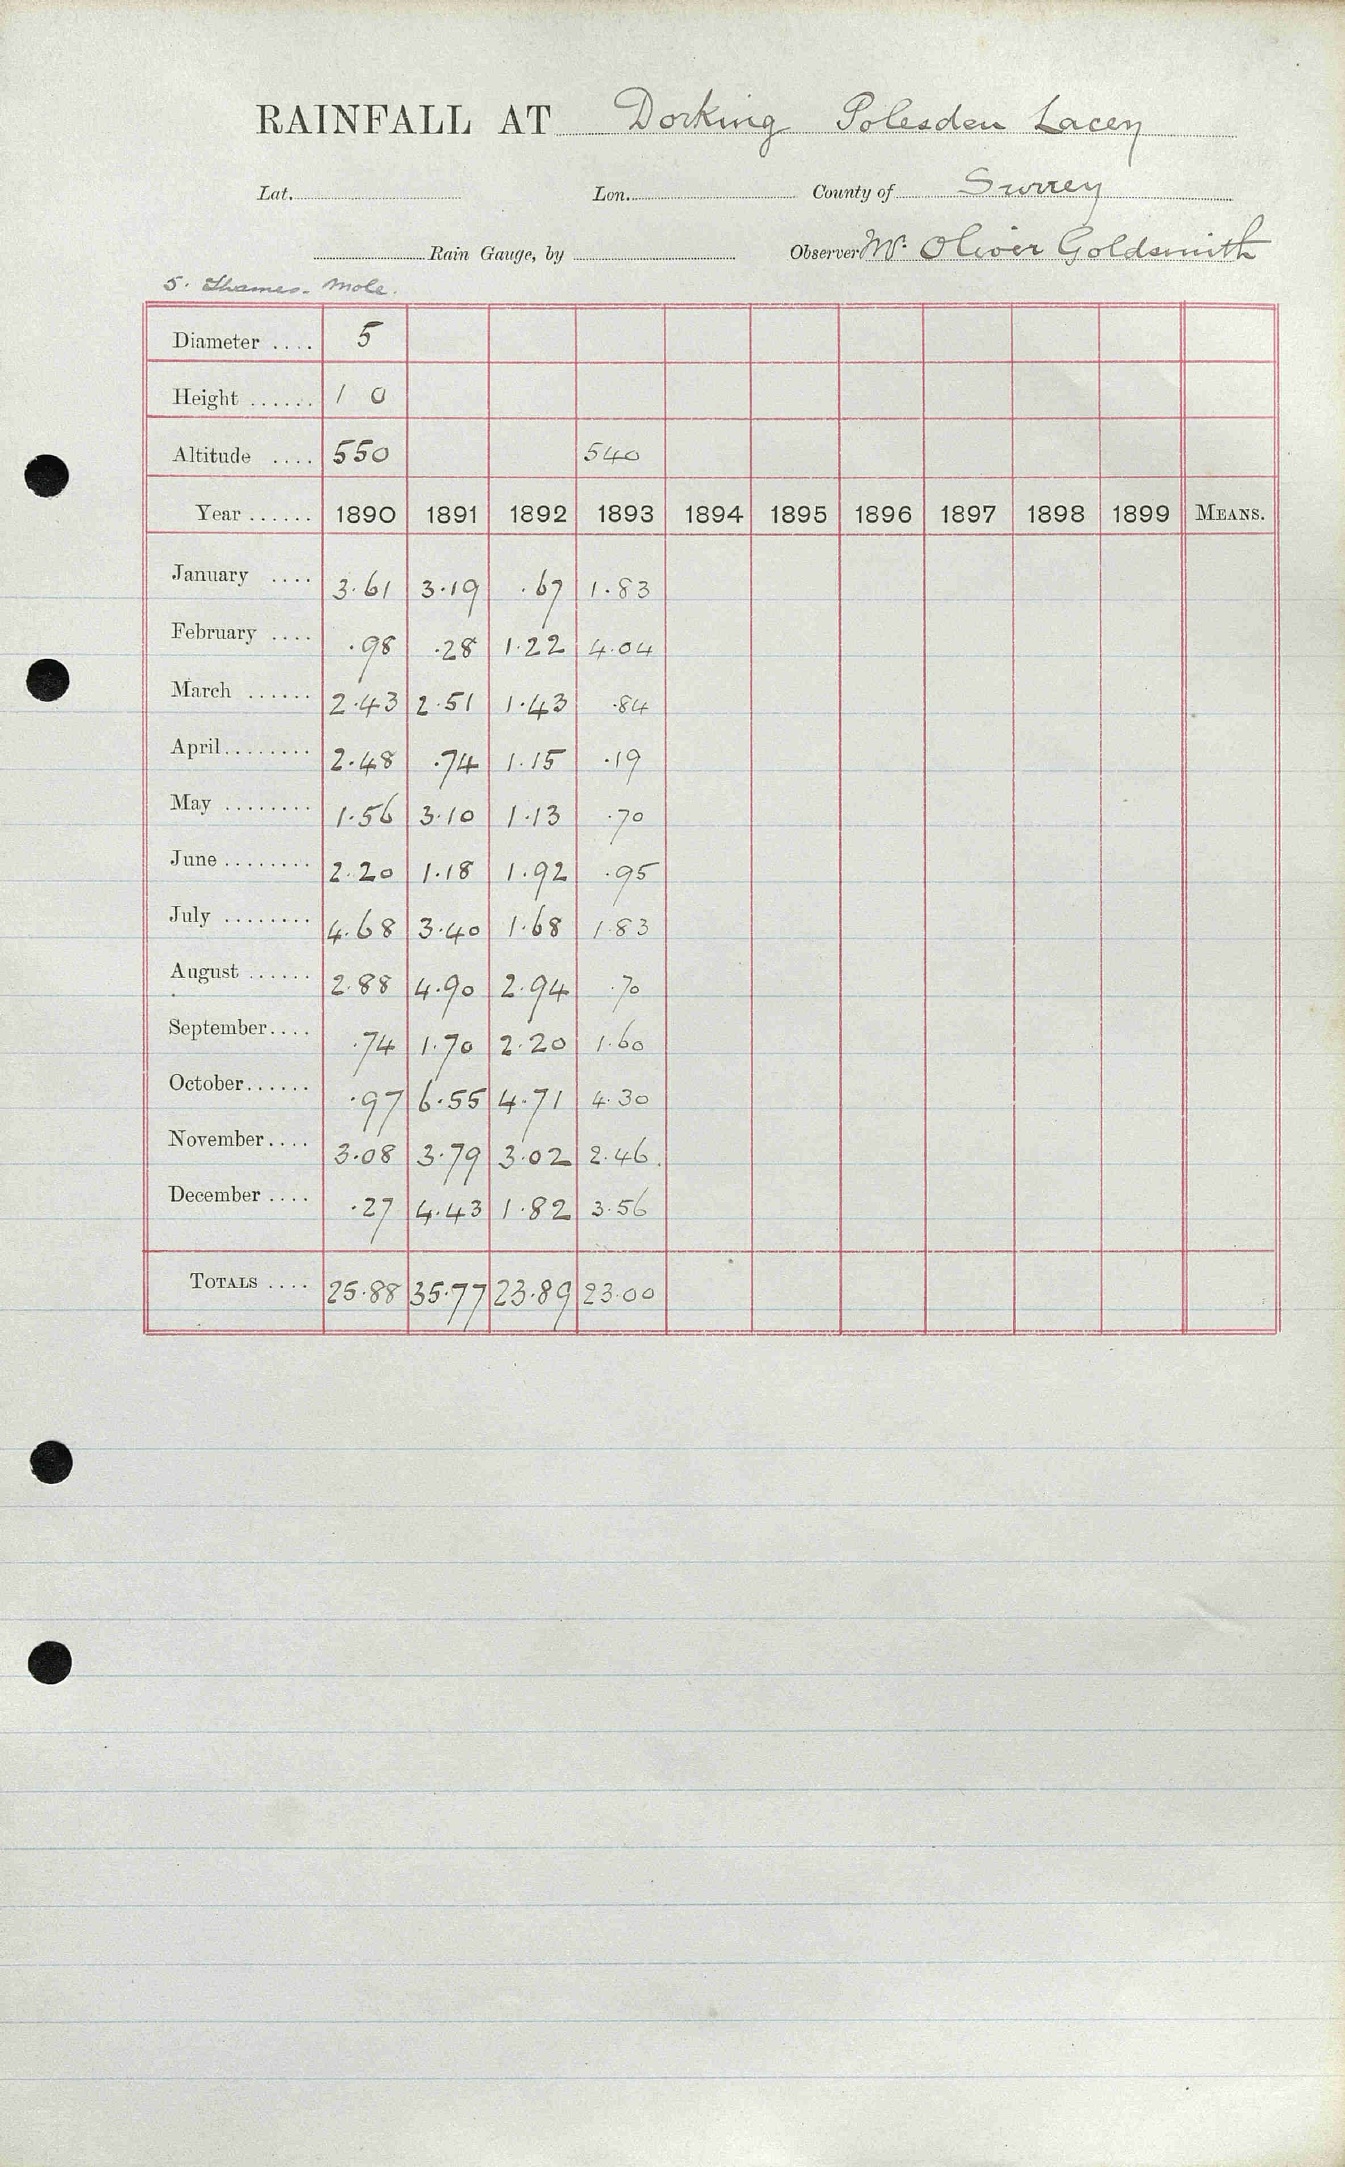 RAINFALL AT Dorking Polesden Lacey
Lat. Lon. County of Surrey
Rain Gauge, by Observer Mr. Oliver Goldsmith
5. Thames. Mole.
Diameter .... 5
Height ...... 1 0
Altitude .... 550 540
Year ...... 1890 1891 1892 1893 1894 1895 1896 1897 1898 1899 MEANS.
January .... 3.61 3.19 .67 1.83
February .... .98 .28 1.22 4.04
March ...... 2.43 2.51 1.43 .84
April........ 2.48 .74 1.15 .19
May ........ 1.56 3.10 1.13 .70
June ........ 2.20 1.18 1.92 .95
July ........ 4.68 3.40 1.68 1.83
August ...... 2.88 4.90 2.94 .70
September.... .74 1.70 2.20 1.60
October...... .97 6.55 4.71 4.30
November.... 3.08 3.79 3.02 2.46.
December .... .27 4.43 1.82 3.56
TOTALS .... 25.88 35.77 23.89 23.00